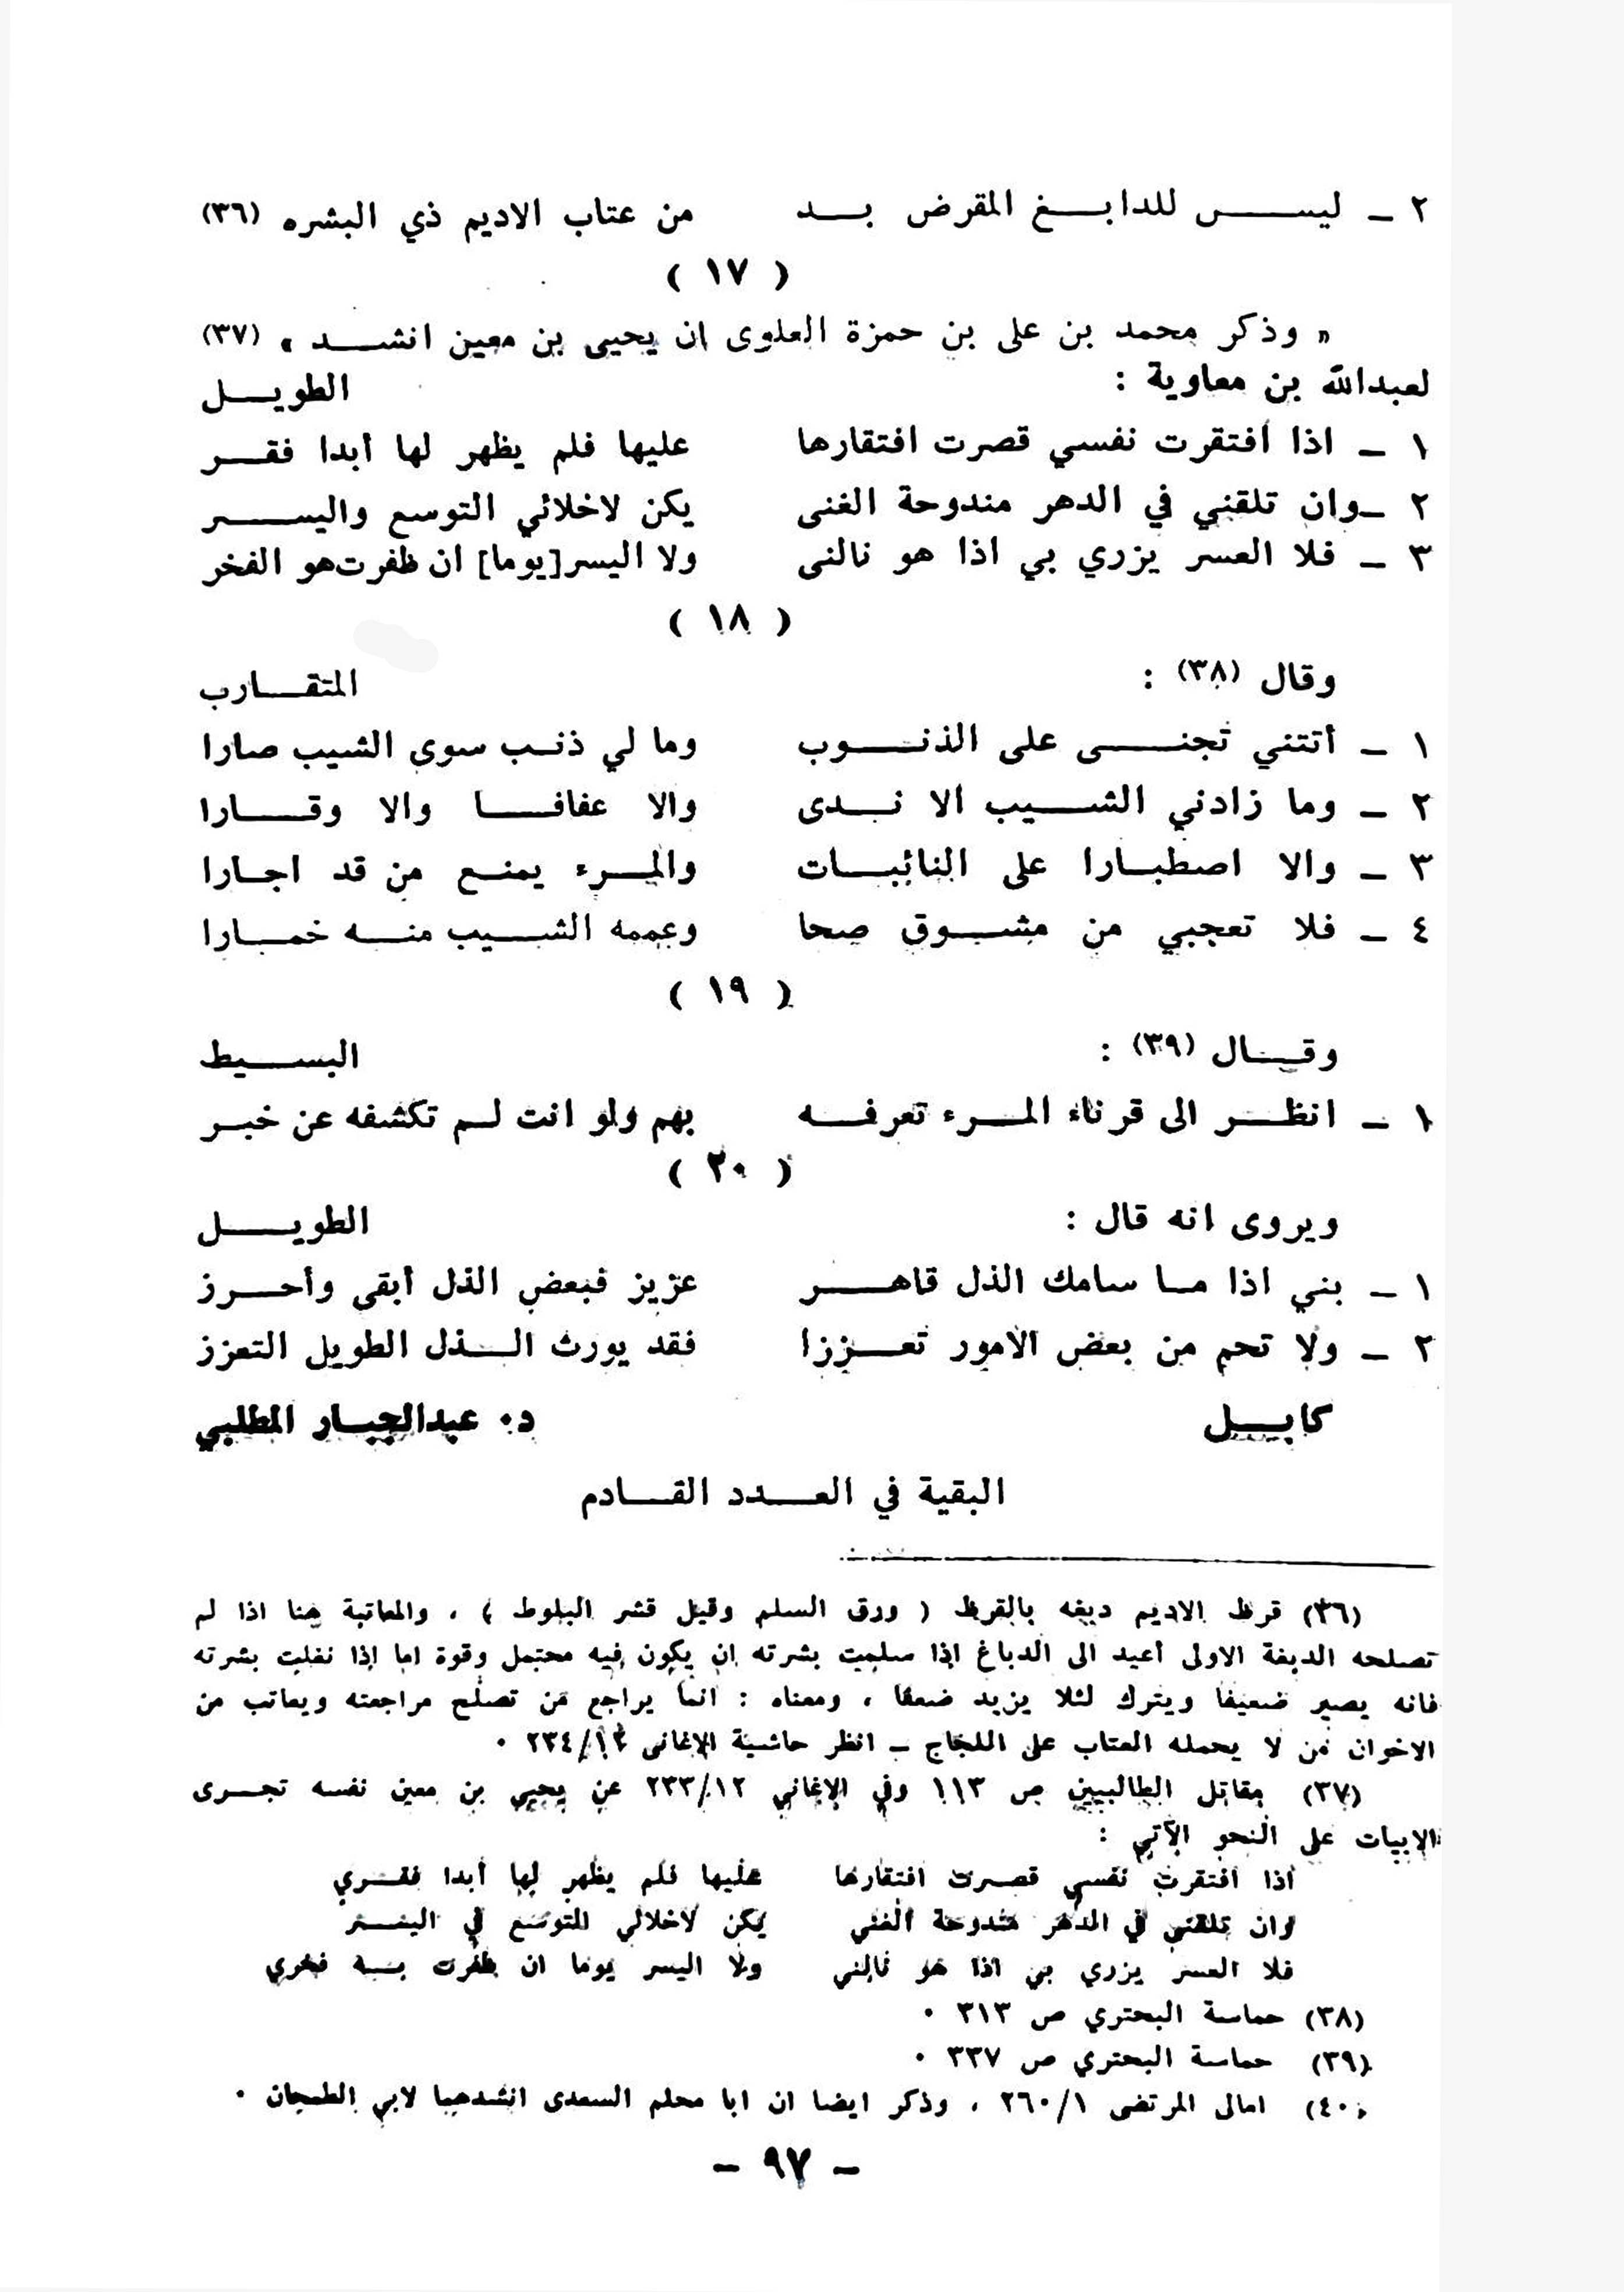 ٢ – ليس للدابغ المقرض بد من عتاب الاديم ذي البشره (٣٦)
( ١٧ )
« وذكر محمد بن على بن حمزة العلوى ان يحيى بن معين انشد » (٣٧)
لعبدالله بن معاوية : الطويل
١ – اذا افتقرت نفسي قصرت افتقارها عليها فلم يظهر لها أبدا فقر
٢ –وان تلقني في الدهر مندوحة الغنى يكن لاخلائي التوسع واليسر
٣ – فلا العسر يزري بي اذا هو نالنى ولا اليسر[يوما] ان ظفرت هو الفخر
( ١٨ )
وقال (٣٨) : المتقارب
١ – أتتني تجنى على الذنوب وما لي ذنب سوى الشيب صارا
٢ – وما زادني الشيب الا ندى والا عفافا والا وقارا
٣ – والا اصطبارا على النائبات والمرء يمنع من قد اجارا
٤ – فلا تعجبي من مشوق صحا وعممه الشيب منه خمارا
( ١٩ )
وقال (٣٩) : البسيط
١ – انظر الى قرناء المرء تعرفه بهم ولو انت لم تكشفه عن خبر
( ٢٠ )
ويروى انه قال : الطويل
١ – بني اذا ما سامك الذل قاهر عزيز فبعض الذل أبقى وأحرز
٢ – ولا تحم من بعض الامور تعززا فقد يورث الذل الطويل التعزز
كابل د. عبدالجبار المطلبي
البقية في العدد القادم
(٣٦) قرظ الاديم دبغه بالقرظ ( ورق السلم وقيل قشر البلوط ) ، والمعاتبة هنا اذا لم
تصلحه الدبغة الاولى أعيد الى الدباغ اذا سلمت بشرته ان يكون فيه محتمل وقوة اما اذا نغلت بشرته
فانه يصير ضعيفا ويترك لئلا يزيد ضعفا ، ومعناه : انما يراجع من تصلح مراجعته ويعاتب من
الاخوان من لا يحمله العتاب على اللجاج – انظر حاشية الاغانى ١٢/٢٣٤ .
(٣٧) مقاتل الطالبيين ص ١١٣ وفي الاغاني ٢٣٣/١٢ عن يحيى بن معين نفسه تجرى
الابيات على النحو الآتي :
اذا افتقرت نفسي قصرت افتقارها عليها فلم يظهر لها أبدا فقري
وان تلقني في الدهر مندوحة الغني يكن لاخلالي التوسع في اليسر
فلا العسر يزري بي اذا هو نالني ولا اليسر يوما ان ظفرت به فخري
(٣٨) حماسة البحتري ص ٣١٣ .
(٣٩) حماسة البحتري ص ٣٣٧ .
(٤٠) امالى المرتضى ٢٦٠/١ ، وذكر ايضا ان ابا محلم السعدى انشدهما لابي الطمحان .
– ٩٧ –